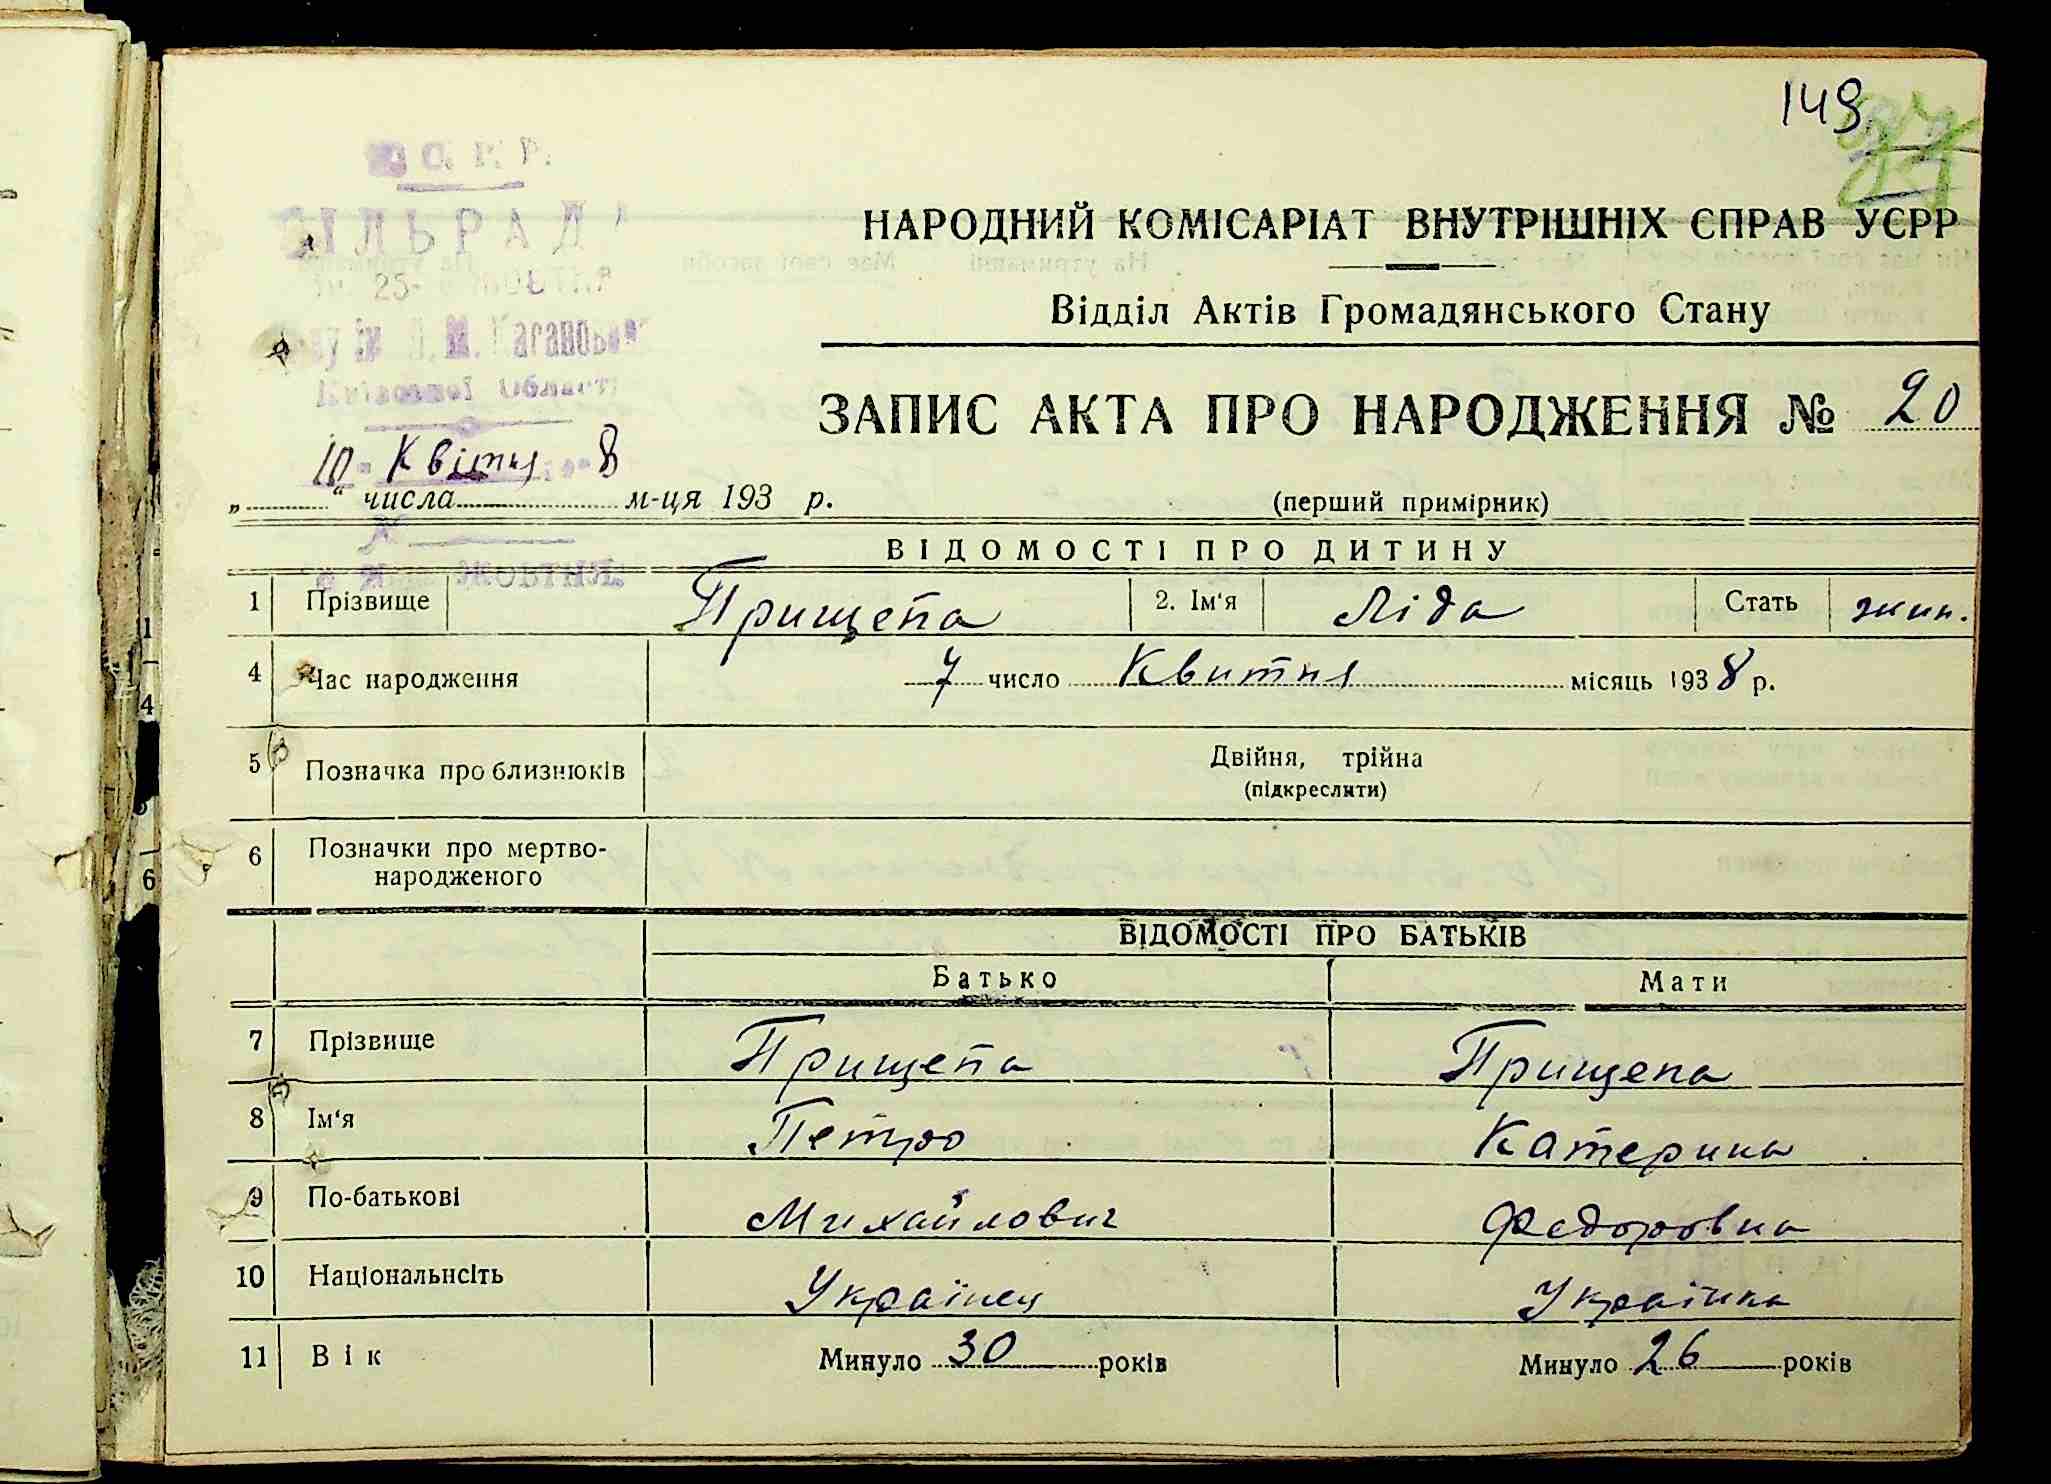 149
С. Р. Р.
СІЛЬРАДА
25-
ім Л. М. Каганов
Київської Області
НАРОДНИЙ КОМІСАРІАТ ВНУТРІШНІХ СПРАВ УСРР
Відділ Актів Громадянського Стану
ЗАПИС АКТА ПРО НАРОДЖЕННЯ № 20
10 Квітня 8
„ “ числа м-ця 193 р.
(перший примірник)
ЖОВТНЯ
ВІДОМОСТІ ПРО ДИТИНУ
1 Прізвище Прищепа 2. Ім'я Ліда Стать жин.
4 Час народження 7 число Квитня місяць 1938 р.
5 Позначка про близнюків Двійня, трійна
(підкреслити)
6 Позначки про мертво-
народженого
ВІДОМОСТІ ПРО БАТЬКІВ
Батько Мати
7 Прізвище Прищепа Прищепа
8 Ім'я Петро Катерина
9 По-батькові Михайлович Федоровна
10 Національнсіть Українец Українка
11 Вік Минуло 30 років Минуло 26 років
1
4
6